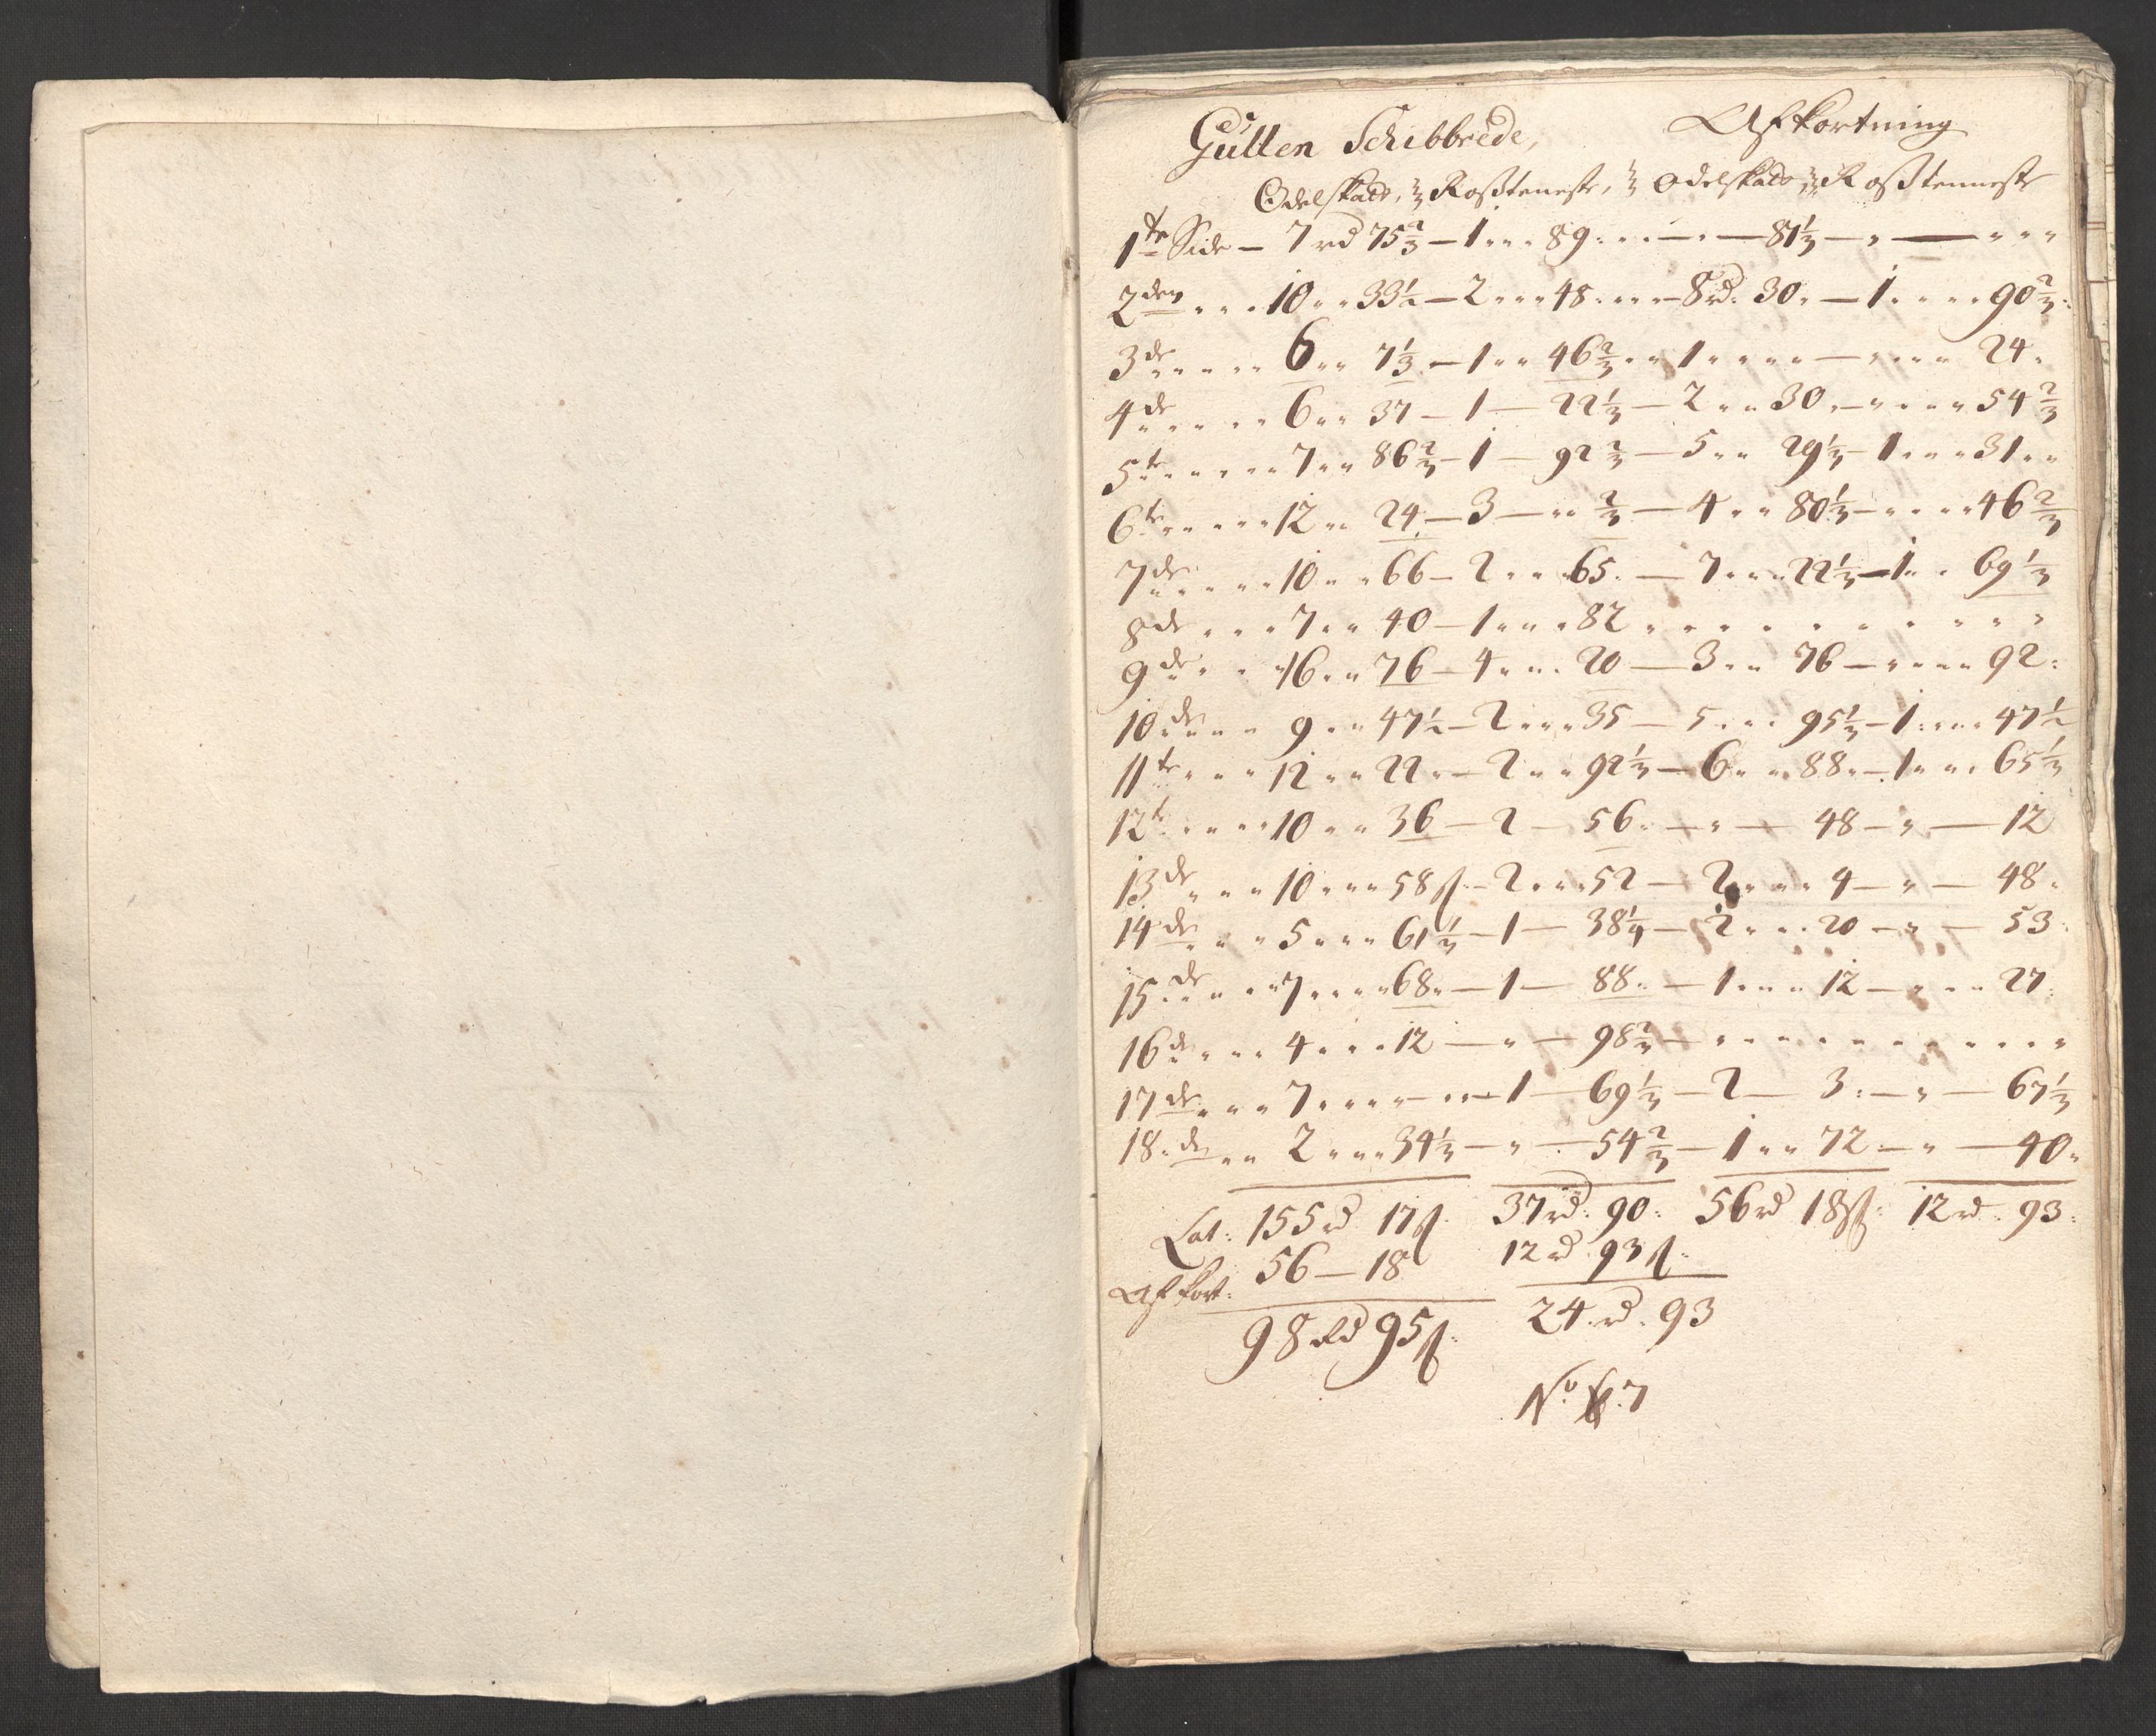 Gullen Schibbrede, Afkortning
Odelskatt, Rosteneste, Odelskatt, Rostenneste
1te Side - 7 rd 75 2/3 - 1 " " 89 " " - " - 81 1/3 - " - " " "
2den " " " 10 " " 33 1/2 - 2 " " " 48 " " " - 8 rd: 30 " - 1 " " " " 90 2/3
3de " " " " 6 " " 7 1/3 - 1 " " 46 2/3 " " 1 " " " " - " " " " 24 "
4de " " " " 6 " " 37 - 1 - 22 1/3 - 2 " " 30 " - " " " " 54 2/3
5te " " " " 7 " " 86 2/3 - 1 - 92 2/3 - 5 " " 29 1/3 - 1 " " " 31 " "
6te " " " " 12 " " 24 - 3 - " " 2/3 - 4 " " 80 1/3 - " " " " 46 2/3
7de " " " " 10 " " 66 - 2 " " " 65 " - 7 " " " 22 1/3 - 1 " " 69 1/3
8de " " " 7 " " 40 - 1 " " " 82 " " " " " " " " " "
9de " " " 16 " " 76 - 4 " " " 20 - 3 " " 76 - " " " " 92 :
10de " " " 9 " " 47 1/2 - 2 " " " 35 - 5 " " " 95 1/3 - 1 " " " 47 1/2
11te " " " 12 " " 22 " - 2 " " 92 1/3 - 6 " " 88 " - 1 " " " 65 1/3
12te " " " " 10 " " 36 - 2 - 56 " - " - 48 - " - 12
13de " " " 10 " " " 58 ß - 2 " " " 52 - 2 " " " 4 - " - 48 "
14de " " " 5 " " " 61 1/3 - 1 - 38 1/4 - 2 " " " 20 - " - 53
15de " " " 7 " " " " 68 " - 1 - 88 " - 1 " " " 12 - " " " 27
16de " " " 4 " " " 12 - " - 98 2/3 - " " " " " " " " " "
17de " " " 7 " " " " - " " - 1 - 69 1/3 - 2 - 3 : - " - 67 1/3
18de " " 2 " " " 34 1/3 - " - 54 2/3 - 1 " " 72 - " - 40 "
Lat: 155 rd 17 ß 37 rd: 90: 56 rd 18 ß: 12 rd: 93:
Afkort: 56 - 18 12 rd 93 ß:
98 Rd 95 ß: 24 rd. 93
No 7